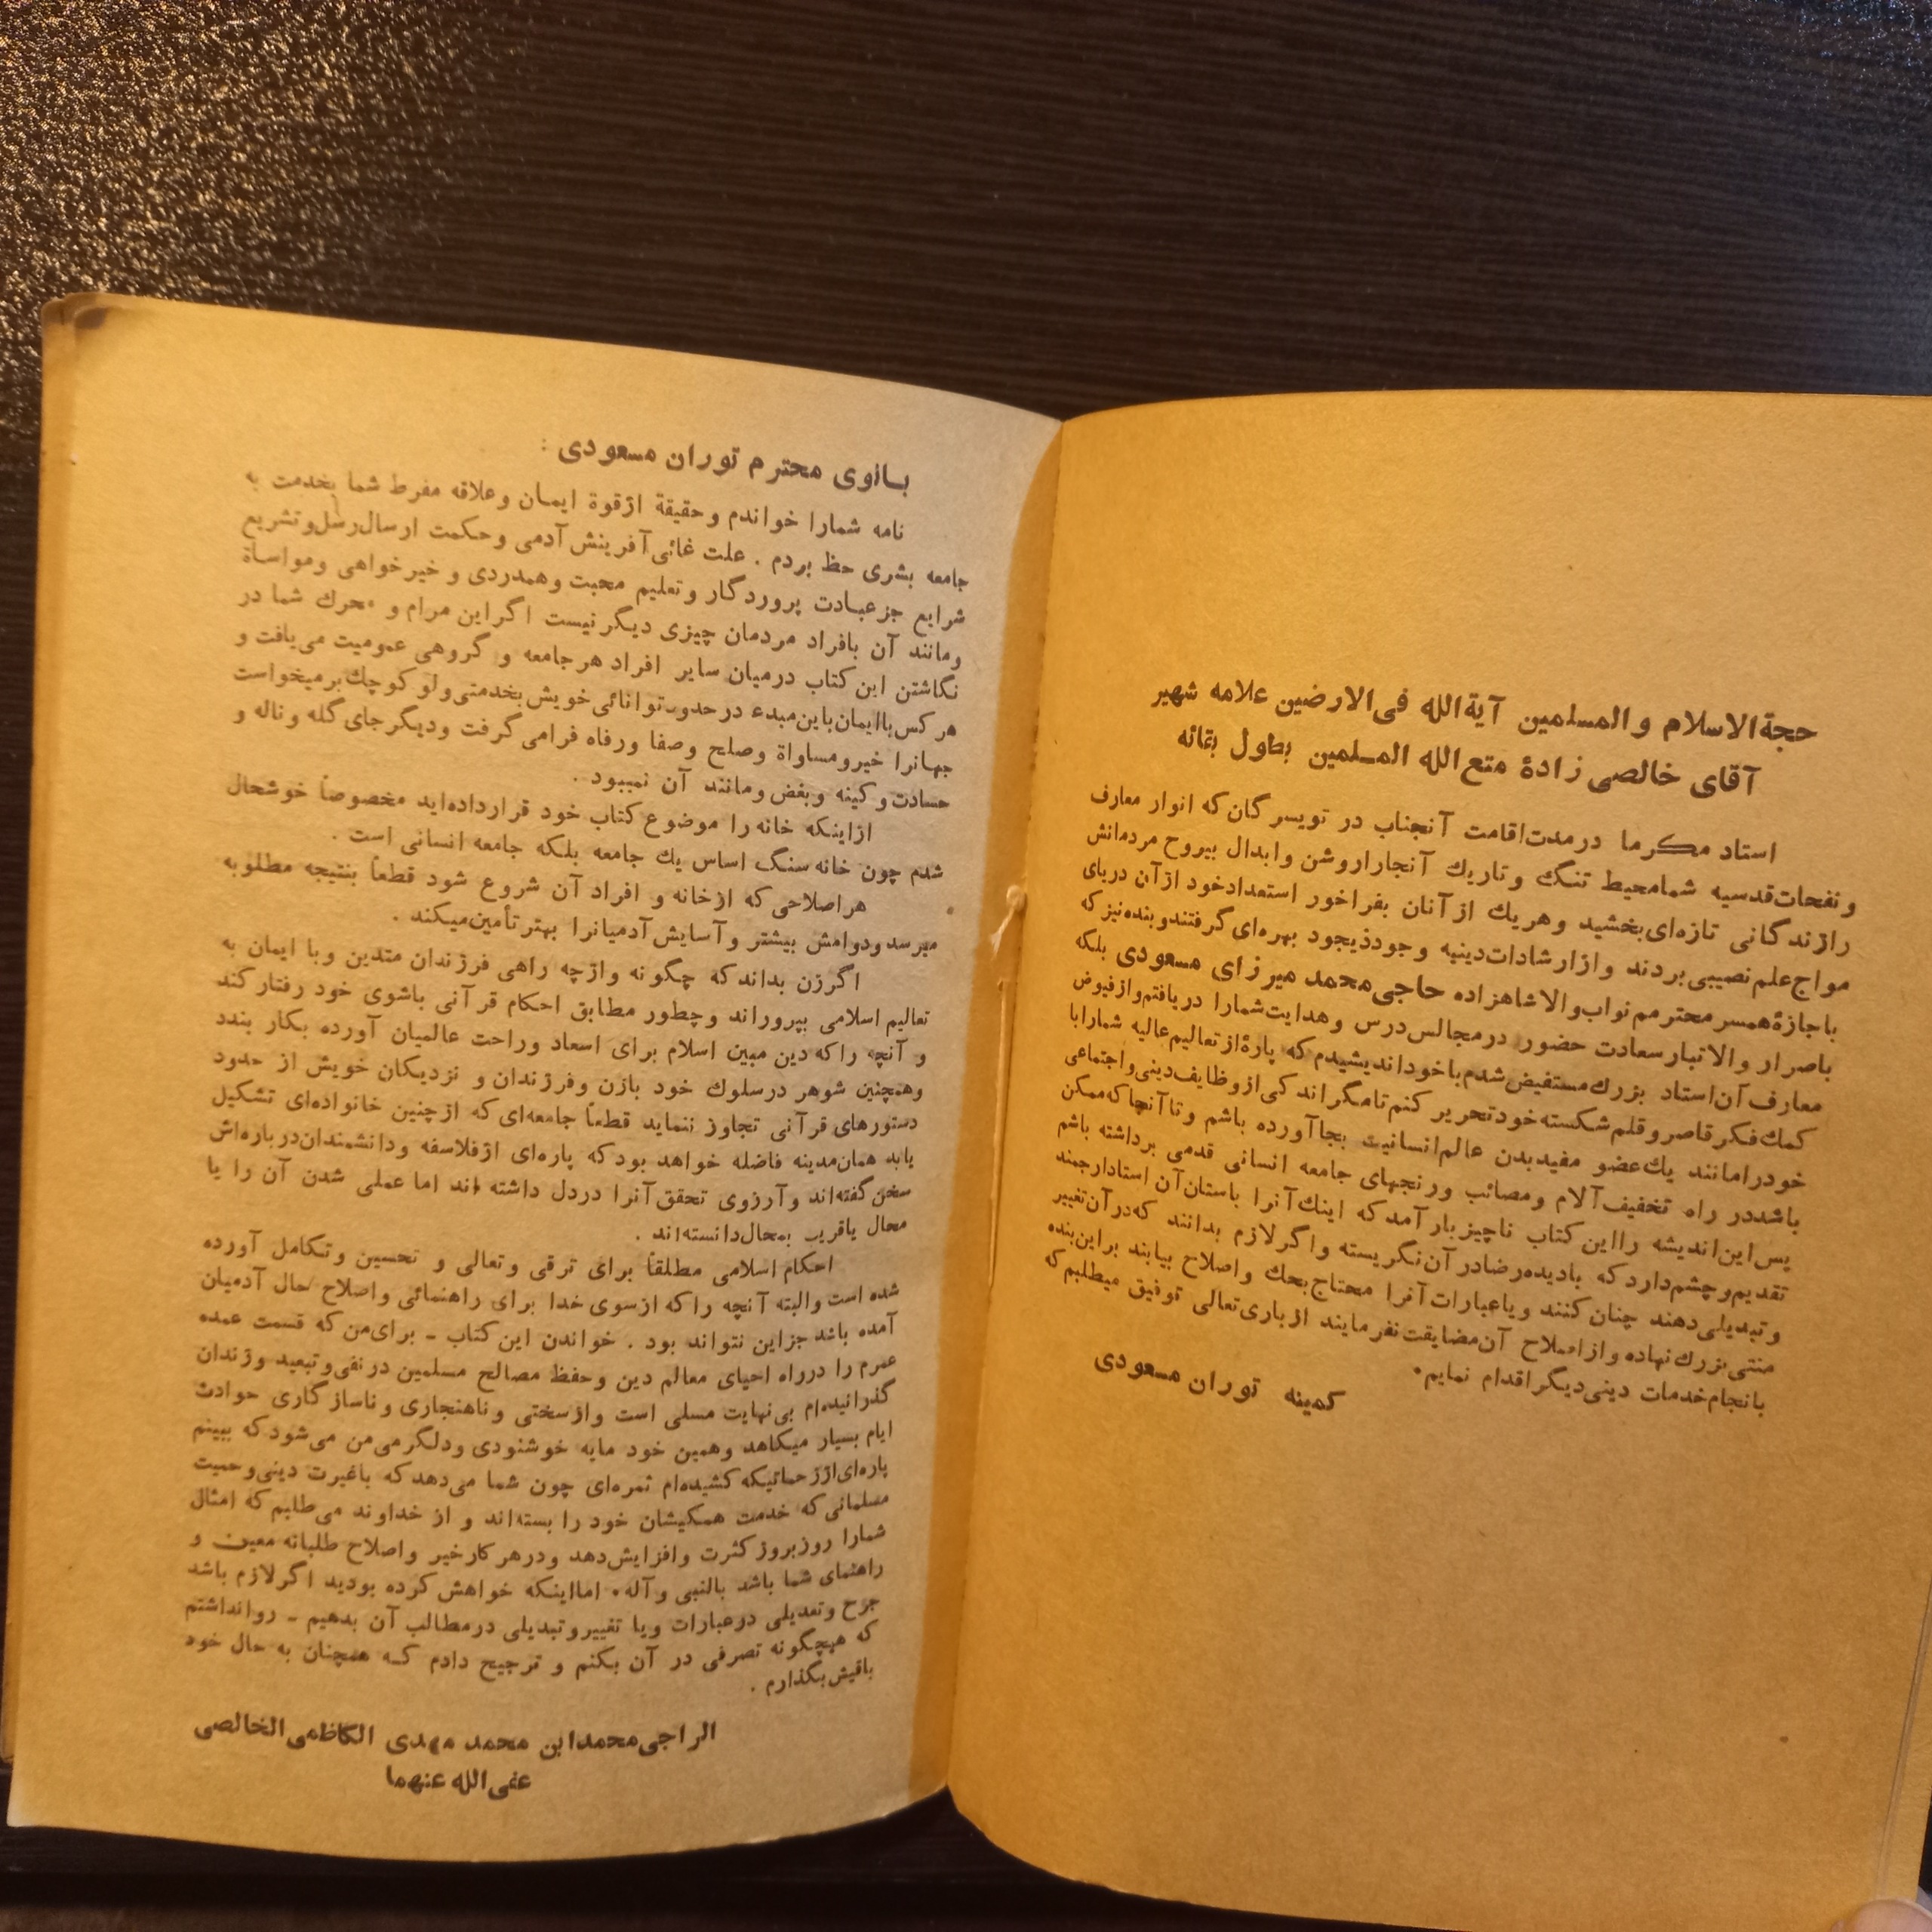 حجةالاسلام والمسلمین آیةالله فی‌الارضین علامه شهیر
آقای خالصی زادهٔ متع‌الله المسلمین بطول بقائه
استاد مکرما درمدت‌اقامت آنجناب در تویسرگان که انوار معارف
و نفحات‌قدسیه شمامحیط تنگ و تاریك آنجاراروشن وابدال بیروح مردمانش
رازندگانی تازه‌ای‌بخشید وهریك ازآنان بفراخور استعدادخود ازآن دریای
مواج‌علم‌نصیبی‌بردند وازارشادات‌دینیه وجودذیجود بهره‌ای‌گرفتندوبنده‌نیزکه
باجازهٔ‌همسرمحترمم‌نواب‌والاشاهزاده حاجی‌محمد میرزای مسعودی بلکه
باصرار والاتبارسعادت حضور درمجالس‌درس وهدایت‌شمارا دریافتم‌وازفیوض
معارف آن‌استاد بزرك‌مستفیض‌شدم‌باخوداندیشیدم که پارهٔ‌ازتعالیم‌عالیه شمارابا
کمك‌فکرقاصروقلم‌شکسته‌خودتحریر کنم‌تامگراندکی‌ازوظایف‌دینی‌واجتماعی
خودرامانند یك‌عضو مفیدبدن عالم‌انسانیت بجاآورده باشم وتاآنجاکه‌ممکن
باشددر راه تخفیف‌آلام ومصائب ورنجهای جامعه انسانی قدمی برداشته باشم
پس‌این‌اندیشه رااین‌کتاب ناچیزبارآمدکه اینك‌آنرا باستان‌آن استادارجمند
تقدیم‌وچشم‌داردکه بادیده‌رضادرآن‌نگریسته واگرلازم بدانند که‌درآن‌تغییر
وتبدیلی‌دهند چنان‌کنند ویاعبارات‌آنرا محتاج‌بحك واصلاح بیابند براین‌بنده
منتی‌بزرك‌نهاده وازاصلاح آن‌مضایقت‌نفرمایند ازباری‌تعالی توفیق میطلبم‌که
بانجام‌خدمات دینی‌دیگراقدام نمایم.
کمینه توران مسعودی
بانوی محترم توران مسعودی :
نامه شمارا خواندم وحقیقة ازقوة ایمان وعلاقه مفرط شما بخدمت به
جامعه بشری حظ بردم . علت غائی‌آفرینش آدمی وحکمت ارسال‌رسل‌وتشریع
شرایع جزعبادت پروردگار وتعلیم محبت وهمدردی و خیرخواهی ومواساة
ومانند آن بافراد مردمان چیزی دیگرنیست اگراین مرام و محرك شما در
نگاشتن این‌کتاب درمیان سایر افراد هرجامعه و گروهی عمومیت می‌یافت و
هرکس‌باایمان‌باین‌مبدء درحدودتوانائی‌خویش‌بخدمتی‌ولوکوچك‌برمیخواست
جهانرا خیرومساواة وصلح وصفا ورفاه فرامی‌گرفت ودیگرجای‌گله وناله و
حسادت‌وکینه وبغض‌ومانند آن نمیبود .
ازاینکه خانه‌را موضوع‌کتاب خود قرارداده‌اید مخصوصاً خوشحال
شدم چون خانه سنگ اساس یك جامعه بلکه جامعه انسانی است .
هراصلاحی که ازخانه و افراد آن شروع شود قطعاً بنتیجه مطلوبه
میرسدودوامش بیشتر وآسایش‌آدمیانرا بهترتأمین‌میکند .
اگرزن بداندکه چگونه وازچه راهی فرزندان متدین وبا ایمان به
تعالیم اسلامی بپروراند وچطور مطابق احکام قرآنی باشوی خود رفتارکند
و آنچه راکه دین مبین اسلام برای اسعاد وراحت عالمیان آورده بکار بندد
وهمچنین شوهر درسلوك خود بازن وفرزندان و نزدیکان خویش از حدود
دستورهای قرآنی تجاوز ننماید قطعاً جامعه‌ای‌که ازچنین خانواده‌ای تشکیل
یابد همان‌مدینه فاضله خواهد بودکه پاره‌ای ازفلاسفه ودانشمندان‌درباره‌اش
سخن‌گفته‌اند وآرزوی تحقق‌آنرا دردل داشته اند اما عملی شدن آن را یا
محال یاقریب بمحال‌دانسته‌اند .
احکام‌اسلامی مطلقاً برای ترقی وتعالی و تحسین وتکامل آورده
شده است والبته آنچه راکه ازسوی خدا برای راهنمائی واصلاح حال آدمیان
آمده باشد جزاین نتواند بود . خواندن این‌کتاب ـ برای‌من‌که قسمت عمده
عمرم را درراه احیای معالم دین وحفظ مصالح مسلمین درنفی‌وتبعید وزندان
گذرانیده‌ام بی‌نهایت مسلی است وازسختی وناهنجاری وناسازگاری حوادث
ایام بسیار میکاهد وهمین خود مایه خوشنودی ودلگرمی‌من می‌شودکه ببینم
پاره‌ای‌اززحماتیکه‌کشیده‌ام ثمره‌ای چون شما می‌دهدکه باغیرت دینی‌وحمیت
مسلمانی‌که خدمت همکیشان خود را بسته‌اند و از خداوند می‌طلبم‌که امثال
شمارا روزبروزکثرت وافزایش‌دهد ودرهرکارخیر واصلاح طلبانه معین و
راهنمای شما باشد بالنبی وآله. امااینکه خواهش‌کرده بودید اگرلازم باشد
جرح وتعدیلی درعبارات ویا تغییروتبدیلی درمطالب آن بدهیم ـ روانداشتم
که هیچگونه تصرفی در آن بکنم و ترجیح دادم که همچنان به حال خود
باقیش‌بگذارم .
الراجی‌محمدابن محمد مهدی الکاظمی‌الخالصی
عفی‌الله عنهما